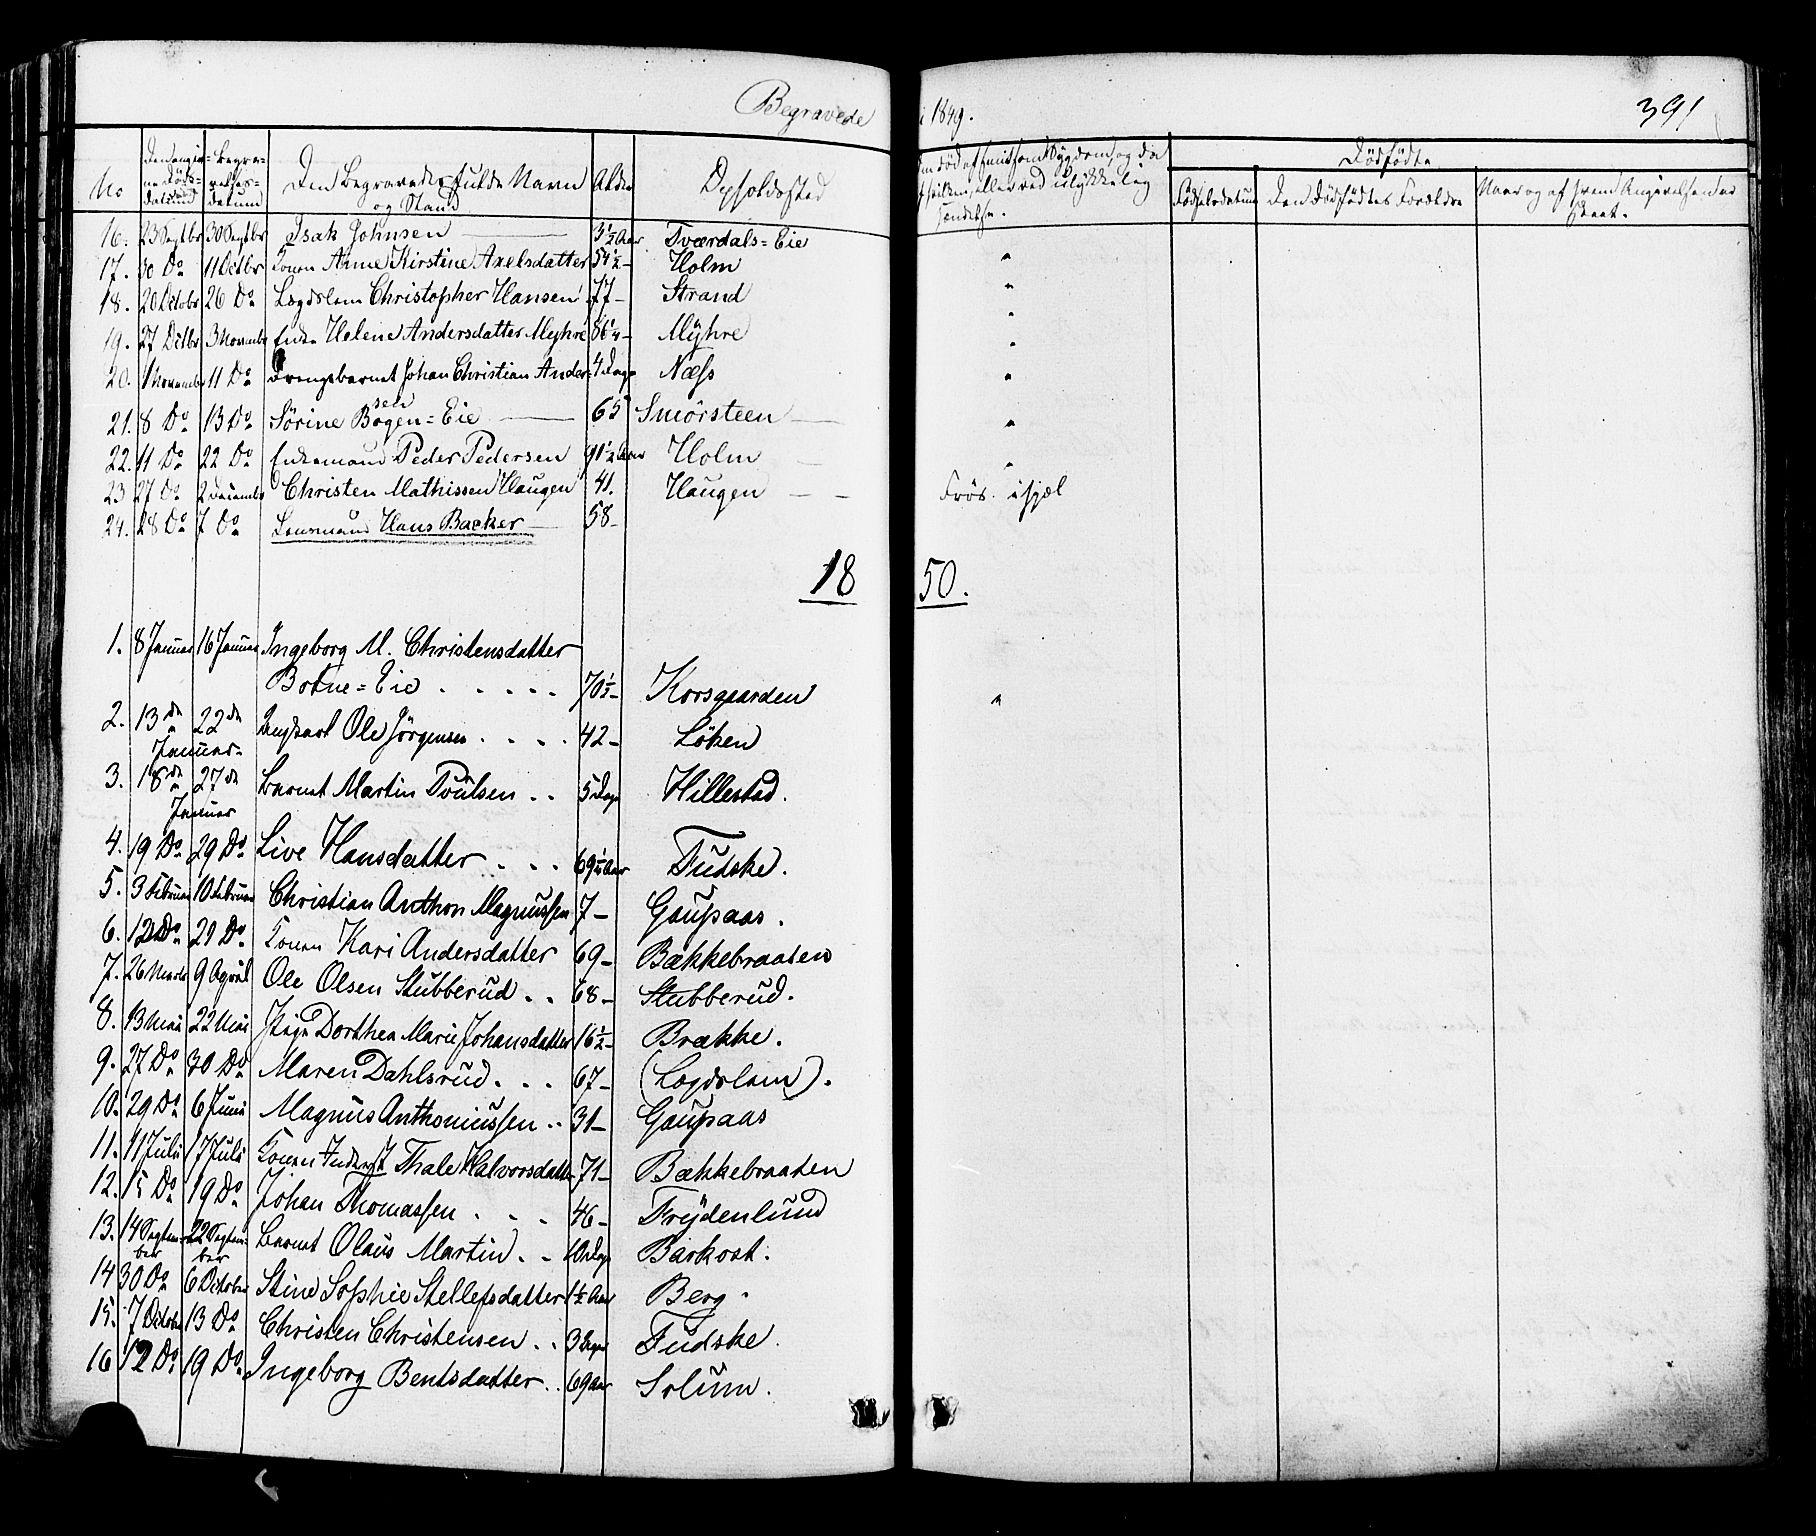 Begravede i 1849. 391
No Den angivne Dødsdatum Begravelsesdatum Den Begravedes fulde Navn og Stand Alder Opholdssted Dødfødte
Fødselsdatum Den Dødfødtes Forældre Naar og af hvem Angivelsen er skeet.
16. 23 Septbr 30 Septbr Isak Johnsen 3½ Aar Tværdals=Eie
17. 30 Do 11 Octbr Konen Anne Kirstine Axelsdatter 54½ - Holm "
18. 20 Octobr 26 Do Lægdslem Christopher Hansen 77 - Strand "
19. 27 Octbr 3 Novembr Enke Helene Andersdatter Myhre 86¼ - Myhre "
20. 1 Novembr 11 Do Drengebarnet Johan Christian Ander= 4 Dage Næss "
sen
21. 8 Do 13 Do Sörine Bogen=Eie 65 Smörsteen "
22. 11 Do 22 Do Enkemand Peder Pedersen 91½ Aar Holm "
23 27 Do 2 Decembr Christen Mathissen Haugen 41. Haugen Frös ihjæl
24. 28 Do 7 Do Lensmand Hans Backer 58 -
1850.
1. 8 Januar 16 Januar Ingeborg M. Christensdatter
Botne=Eie 70½ - Korsgaarden "
2. 13de 22de Ole Jörgensen 42 - Löken
Januar
3. 18de 27de Barnet Martin Poulsen 5 Dage Hillestad.
Januar
4. 19 Do 29 Do Live Hansdatter 69½ Aar Fudske.
5. 3 Februar 10 Februar Christian Anthon Magnussen 7 - Goupaas.
6. 12 Do 29 Do Konen Kari Andersdatter 69 - Bækkebraaten
7. 26 Marts 9 April Ole Olsen Stubberud 68 - Stubberud.
8. 13 Mai 22 Mai Pige Dorthea Marie Johansdatter 16½ - Brække.
9. 27 Do 30 Do Maren Dahlsrud 67 - (Lægdslem).
10. 29 Do 6 Juni Magnus Anthoniussen 31 - Goupaas
11. 11 Juli 17 Juli Konen Thale Halvorsdatter 71 - Bækkebraaten
12. 15 Do 19 Do Johan Thomassen 46 - Frydenlund
13. 14 Septem= 22 Septem= Barnet Olaus Martin 10 Dage Barkost.
ber ber
14 30 Do 6 October Stine Sophie Stellefsdatter 1½ Aar Berg.
15. 7 Octobr 13 Do Christen Christensen 3 Dage Fudske.
16 12 Do 19 Do Ingeborg Bentsdatter 69 Aar Solum.